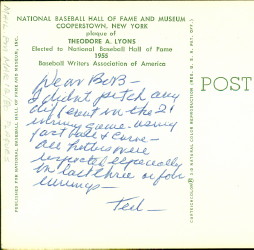 NATIONAL BASEBALL HALL OF FAME AND MUSEUM
COOPERSTOWN, NEW YORK
plaque of
THEODORE A. LYONS
Elected to National Baseball Hall of Fame
1955
Baseball Writers Association of America
Dear Bob—
I didn't pitch any
different in the 21
inning game. using
fast ball & curve—
all hitters were
respected especially
in last three or four
innings—
Ted—
POST
PUBLISHED FOR NATIONAL BASEBALL HALL OF FAME AND MUSEUM, INC.